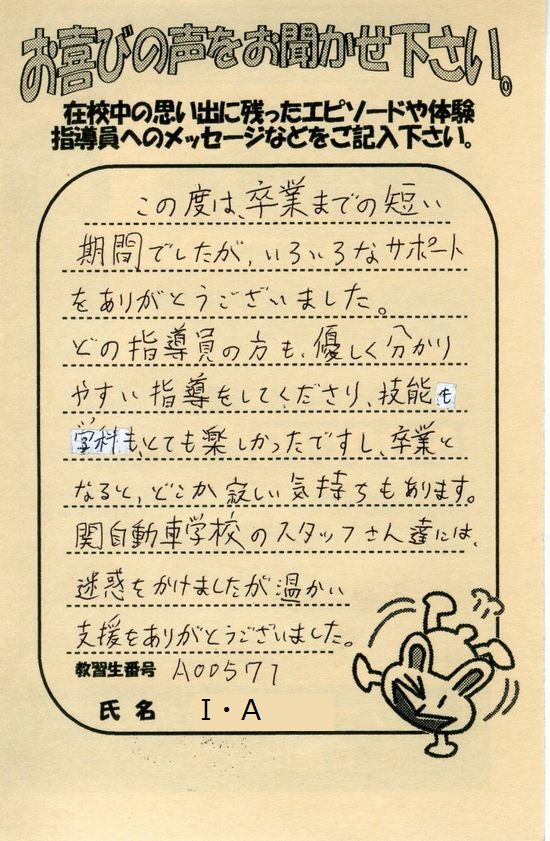 お喜びの声をお聞かせ下さい。
在校中の思い出に残ったエピソードや体験
指導員へのメッセージなどをご記入下さい。
この度は、卒業までの短い
期間でしたが、いろいろなサポート
をありがとうございました。
どの指導員の方も、優しく分かり
やすい指導をしてくださり、技能も
学科も、とても楽しかったですし、卒業と
なると、どこか寂しい気持ちもあります。
関自動車学校のスタッフさん達には、
迷惑をかけましたが温かい
支援をありがとうございました。
教習生番号 A00571
氏名 I・A